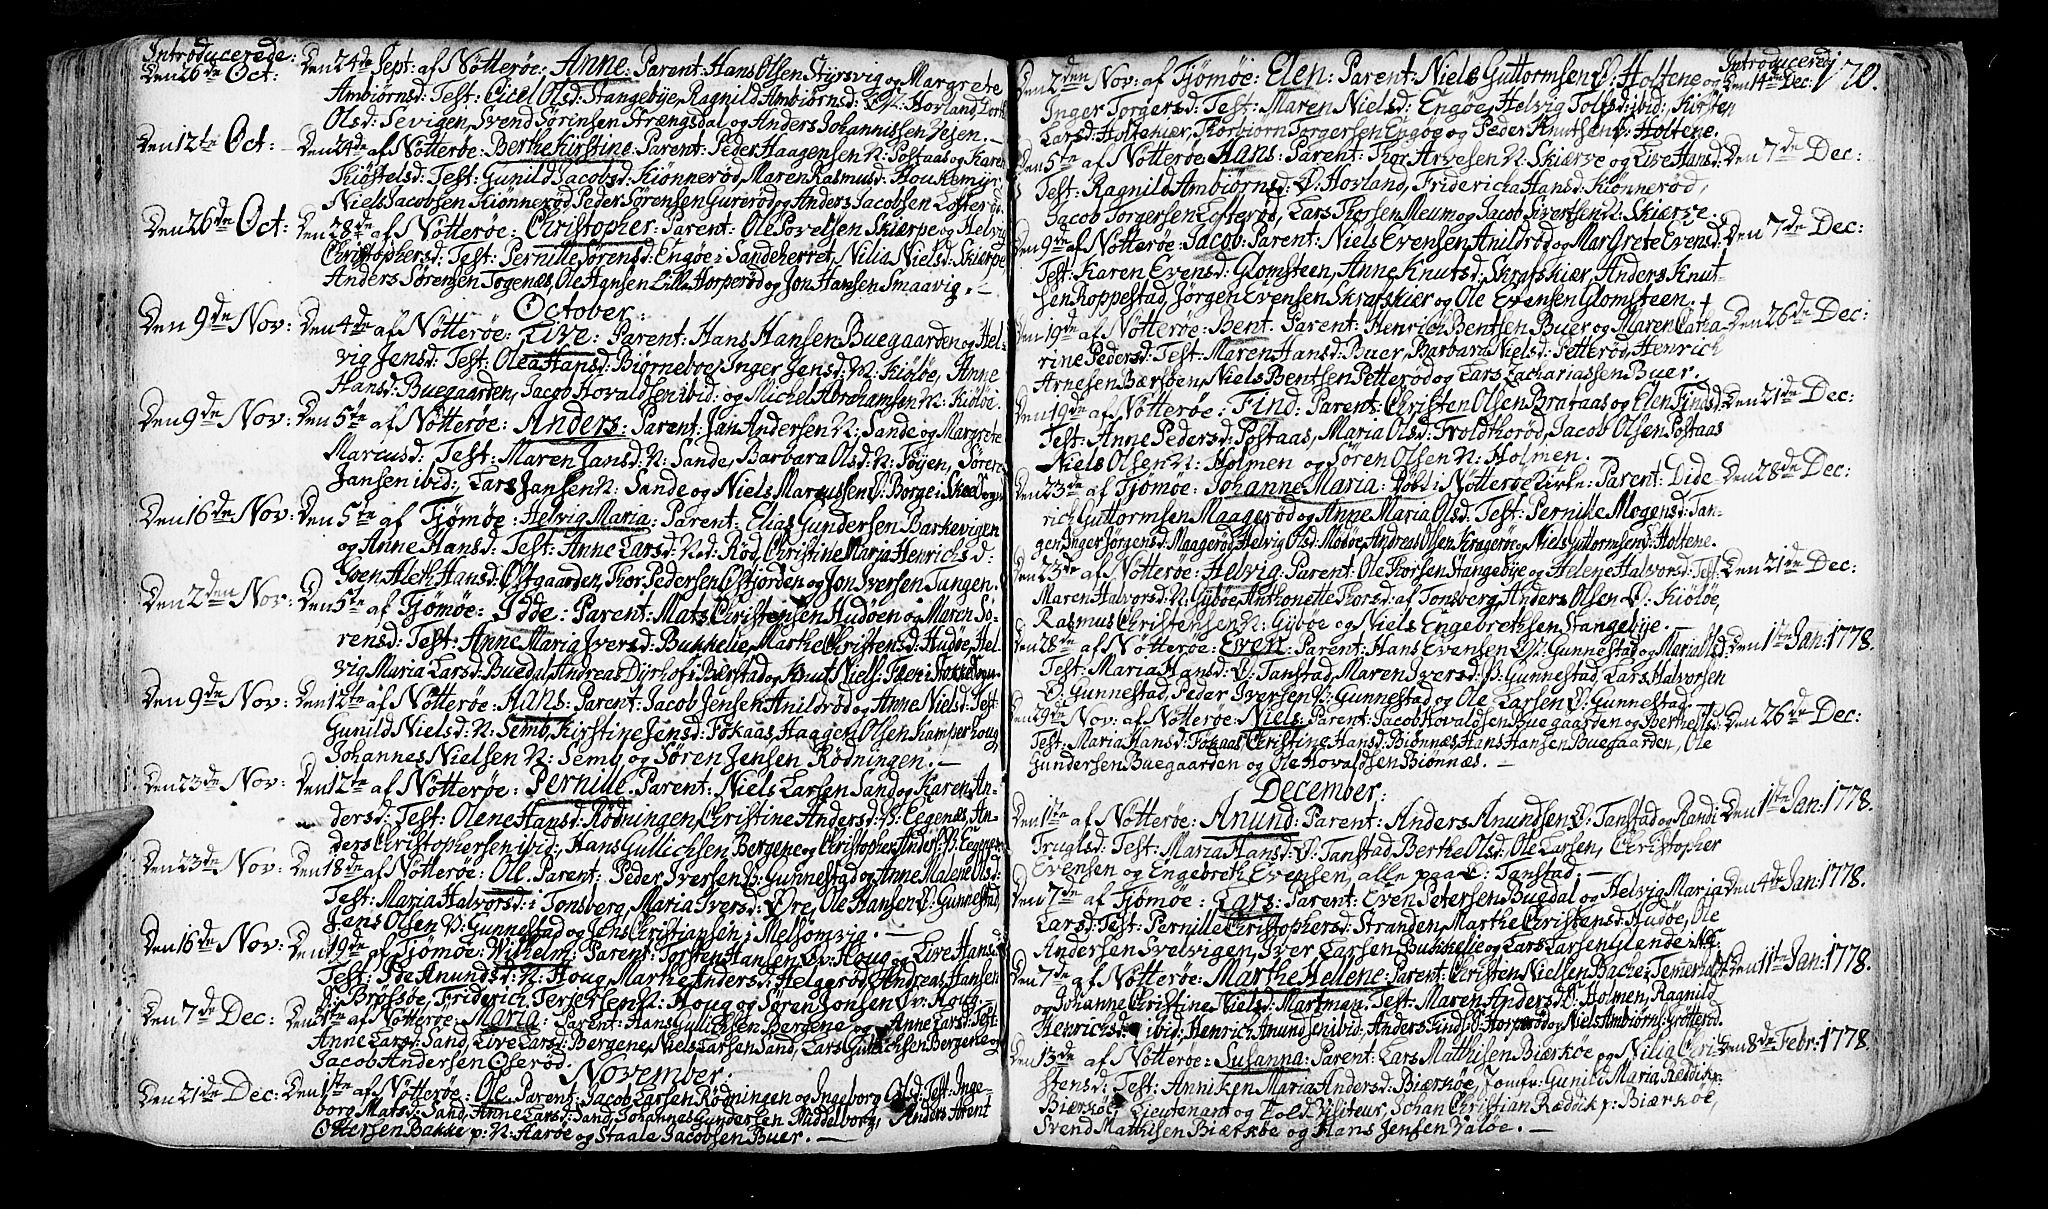 Introducerede:
Den 26de Oct: Den 24de Sept: af Nötteröe: Anne: Parent: Hans Olsen Styrsvig og Margrete
Ambiörnsd: Test: Cicel Olsd: Stangebÿe, Ragnild Ambiörnsd: Hovland, Dorthe
Olsd: Tevigen, Svend Sörinsen Strængsdal og Anders Johannissen Jesen.
Den 12te Oct: Den 24de af Nötteröe: Berthe Kirstine: Parent: Peder Haagensen N: Postaas og Karen
Kiöstelsd: Test: Gunild Jacobsd: Kiönneröd, Maren Rasmusd: Houkemÿr
Niels Jacobsen Kiönneröd Peder Sörensen Gureröd og Anders Jacobsen Lofteröd.
Den 26de Oct: Den 28de af Nötteröe: Christopher: Parent: Ole Povelsen Skierpe og Helvig
Christophersd: Test: Pernille Sörensd: Engöe i Sandeherret, Nilia Nielsd: Skierpe
Anders Sörensen Togenæs, Ole Hansen Lille Horperöd og Jon Hansen Smaavig.
October:
Den 9de Nov: Den 4de af Nötteröe: Live: Parent: Hans Hansen Buegaarden og Hel-
vig Jensd: Test: Olea Hansd: Biörneboe, Inger Jensd: N: Kiölöe, Anne
Hansd: Buegaarden, Jacob Hovaldsen ibid: og Michel Abrahamsen N: Kiölöe.
Den 9de Nov: Den 5te af Nötteröe: Anders: Parent: Jan Andersen N: Sande og Margrete
Marcusd: Test: Maren Jansd: N: Sande, Barbara Olsd: N: Töÿen, Sören
Jansen ibid:, Lars Jansen N: Sande og Niels Marcussen Ö: Borge i Skeedogn
Den 16de Nov: Den 5te af Tjömöe: Helvig Maria: Parent: Elias Gundersen Barkevigen
og Anne Hansd: Test: Anne Larsd: Nd: Röd, Christine Maria Henrichsd:
Goen Aleth Hansd: Östgaarden, Thor Pedersen Östjorden og Jon Iversen Tungen.
Den 2den Nov: Den 5te af Tjömöe: Idde: Parent: Mats Christensen Hudöen og Maren Sö-
rensd: Test: Anne Maria Iversd: Bukkelie, Marthe Christensd: Hudöe, Hel-
vig Maria Larsd: Buedal, Andreas Dÿrhof i Bierstad og Knut Niels: Fæen i Stokkeogn
Den 9de Nov: Den 12te af Nötteröe: Hans: Parent: Jacob Jensen Anildröd og Anne Nielsd: Test
Gunild Nielsd: N: Semb, Kirstine Jensd: Fökaas Haagen Olsen Kamperhoug
Johannes Nielsen N: Semb, og Sören Jensen Rödningen.
Den 23de Nov: Den 12te af Nötteröe: Pernille. Parent: Niels Larsen Sand og Karen An-
dersd: Test: Olene Hansd: Rödningen, Christine Andersd: V: Eegenæs, An-
ders Christophersen ibid:, Hans Gullichsen Bergene og Christopher Anders: V: Eegenæs
Den 23de Nov: Den 18de af Nötteröe: Ole. Parent: Peder Iversen V: Gunnestad og Anne Malene Olsd:
Test: Maria Halvorsd: i Tönsberg, Maria Iversd: Öre, Ole Hansen Ö: Gunnestad,
Jens Olsen V: Gunnestad og Jens Christiansen i Melsomvig.
Den 16de Nov: Den 19de af Tjömöe: Vilhelm: Parent: Torsten Hansen Öv: Houg og Live Hansd:
Test: Ide Anundsd: N: Houg, Marthe Andersd: Helgeröd, Andreas Hansen
Brofsöe, Friderich Terjersen N: Houg og Sören Jonsen Öv: Houg.
Den 7de Dec: Den af Nötteröe: Maria: Parent: Hans Gullichsen Bergene og Anne Larsd: Test:
Anne Larsd: Sand, Live Larsd: Bergene, Niels Larsen Sand, Lars Gullichsen Bergene og
Jacob Andersen Oseröd.
November:
Den 21de Dec: Den 1ste af Nötteröe: Ole. Parent: Jacob Larsen Rödningen og Ingeborg Olsd: Test: Inge-
borg Matsd: Sand, Anne Larsd: Sand, Johannes Gundersen Middelborg, Anders Arent
Ottersen Bakke p: N: Haröe og Staale Jacobsen Buer.
Introducered:
170.
Den 2den Nov: af Tjömöe: Elen: Parent: Niels Guttormsen Ö: Holtene og Den 14de Dec:
Inger Torgersd: Test: Maren Nielsd: Engöe, Helvig Tolfsd: ibid:, Kirsten
Larsd: Holtekiær, Thorbiörn Torgersen Engöe og Peder Knutsen Ö: Holtene.
Den 5te af Nötteröe Hans: Parent: Thor Arvesen N: Skiærve og Live Hansd: Den 7de Dec:
Test: Ragnild Ambiörnsd: Ö: Hovland, Fridericha Hansd: Kiönneröd,
Jacob Torgersen Lofteröd, Lars Thorsen Meum og Jacob Sivertsen N: Skiærve.
Den 9de af Nötteröe: Jacob: Parent: Niels Evensen Anildröd og Margrete Evensd: Den 7de Dec:
Test: Karen Evensd: Glomsteen, Anne Knutsd: Skrafskiær, Anders Knut-
sen Roppestad, Jörgen Evensen Skrafskiær og Ole Evensen Glomsteen.
Den 19de af Nötteröe: Bent. Parent: Henrich Bentsen Buer og Maren Catha Den 26de Dec:
rine Pedersd: Test: Maren Hansd: Buer, Barbara Nielsd: Petteröd, Henrich
Arnesen Bærsöen, Niels Bentsen Petteröd og Lars Zachariassen Buer.
Den 19de af Nötteröe: Find: Parent: Christen Olsen Brataas og Elen Findsd: Den 21de Dec:
Test: Anne Pedersd: Postaas, Maria Olsd: Froldkoröd, Jacob Olsen Postaas
Niels Olsen N: Holmen og Sören Olsen N: Holmen.
Den 23de af Tjömöe: Johanne Maria: Döbt i Nötteröe Kirke: Parent: Dide- Den 28de Dec:
rich Guttormsen Maageröd og Anne Maria Olsd: Test: Pernille Mogensd: Tan-
gen, Inger Jörgensd: Maageröd, Helvig Olsd: Moböe, Andreas Olsen Krageröe og Niels Guttormsen Ö: Holtene.
Den 23de af Nötteröe: Helvig: Parent: Ole Thorsen Stangebÿe og Helene Halvorsd: Test: Den 21de Dec:
Maren Halvorsd: N: Gÿböe, Anthonette Thorsd: af Tönsberg, Anders Olsen Ö: Kiölöe,
Rasmus Christensen N: Gÿböe og Niels Engebrethsen Stangebÿe.
Den 28de af Nötteröe: Even: Parent: Hans Evensen V: Gunnestad og Maria Olsd: Den 1ste Jan: 1778.
Test: Maria Hansd: Ö: Tanstad, Maren Iversd: V: Gunnestad, Lars Halvorsen
Ö: Gunnestad, Peder Iversen V: Gunnestad og Ole Larsen Ö: Gunnestad.
Den 29de Nov: af Nötteröe: Niels: Parent: Jacob Hovaldsen Buegaarden og Berthe Olsd: Den 26de Dec:
Test: Maria Hansd: Fökaas, Christine Hansd: Biönnæs, Hans Hansen Buegaarden, Ole
Gundersen Buegaarden og Ole Hovaldsen Biönnæs.
December:
Den 1ste af Nötteröe: Anund: Parent: Anders Anundsen Ö: Tanstad og Randi Den 1ste Jan: 1778.
Truglsd: Test: Maria Hansd: Ö: Tanstad, Berthe Olsd:, Ole Larsen, Christopher
Evensen og Engebreth Evensen, alle paa Ö: Tanstad.
Den 7de af Tjömöe: Lars: Parent: Even Petersen Buedal og Helvig Maria Den 4de Jan: 1778.
Larsd: Test: Pernille Christophersd: Stranden, Marthe Christensd: Hudöe, Ole
Andersen Svelvigen, Iver Larsen Bukkelie og Lars Larsen Glende.
Den 7de af Nötteröe: Marthe Helene: Parent: Christen Nielsen Bache: Temerud Den 11te Jan: 1778.
og Johanne Christine Nielsd: Martman, Test: Maren Andersd: Ö: Holmen, Ragnild
Henrichsd: ibid, Henrich Anundsen ibid, Anders Findsd: Horperöd og Niels Ambiörns: Grötteröd.
Den 13de af Nötteröe: Susanna: Parent: Lars Matthisen Biærköe og Nilia Chri Den 8de Febr: 1778
stensd: Test: Anniken Maria Andersd: Biærköe, Jomfr: Gunild Maria Reddik p:
Biærköe, Lieutenant og Told Visiteur, Johan Christian Reddik p: Biærköe,
Svend Matthisen Biærköe og Hans Jensen Valöe.